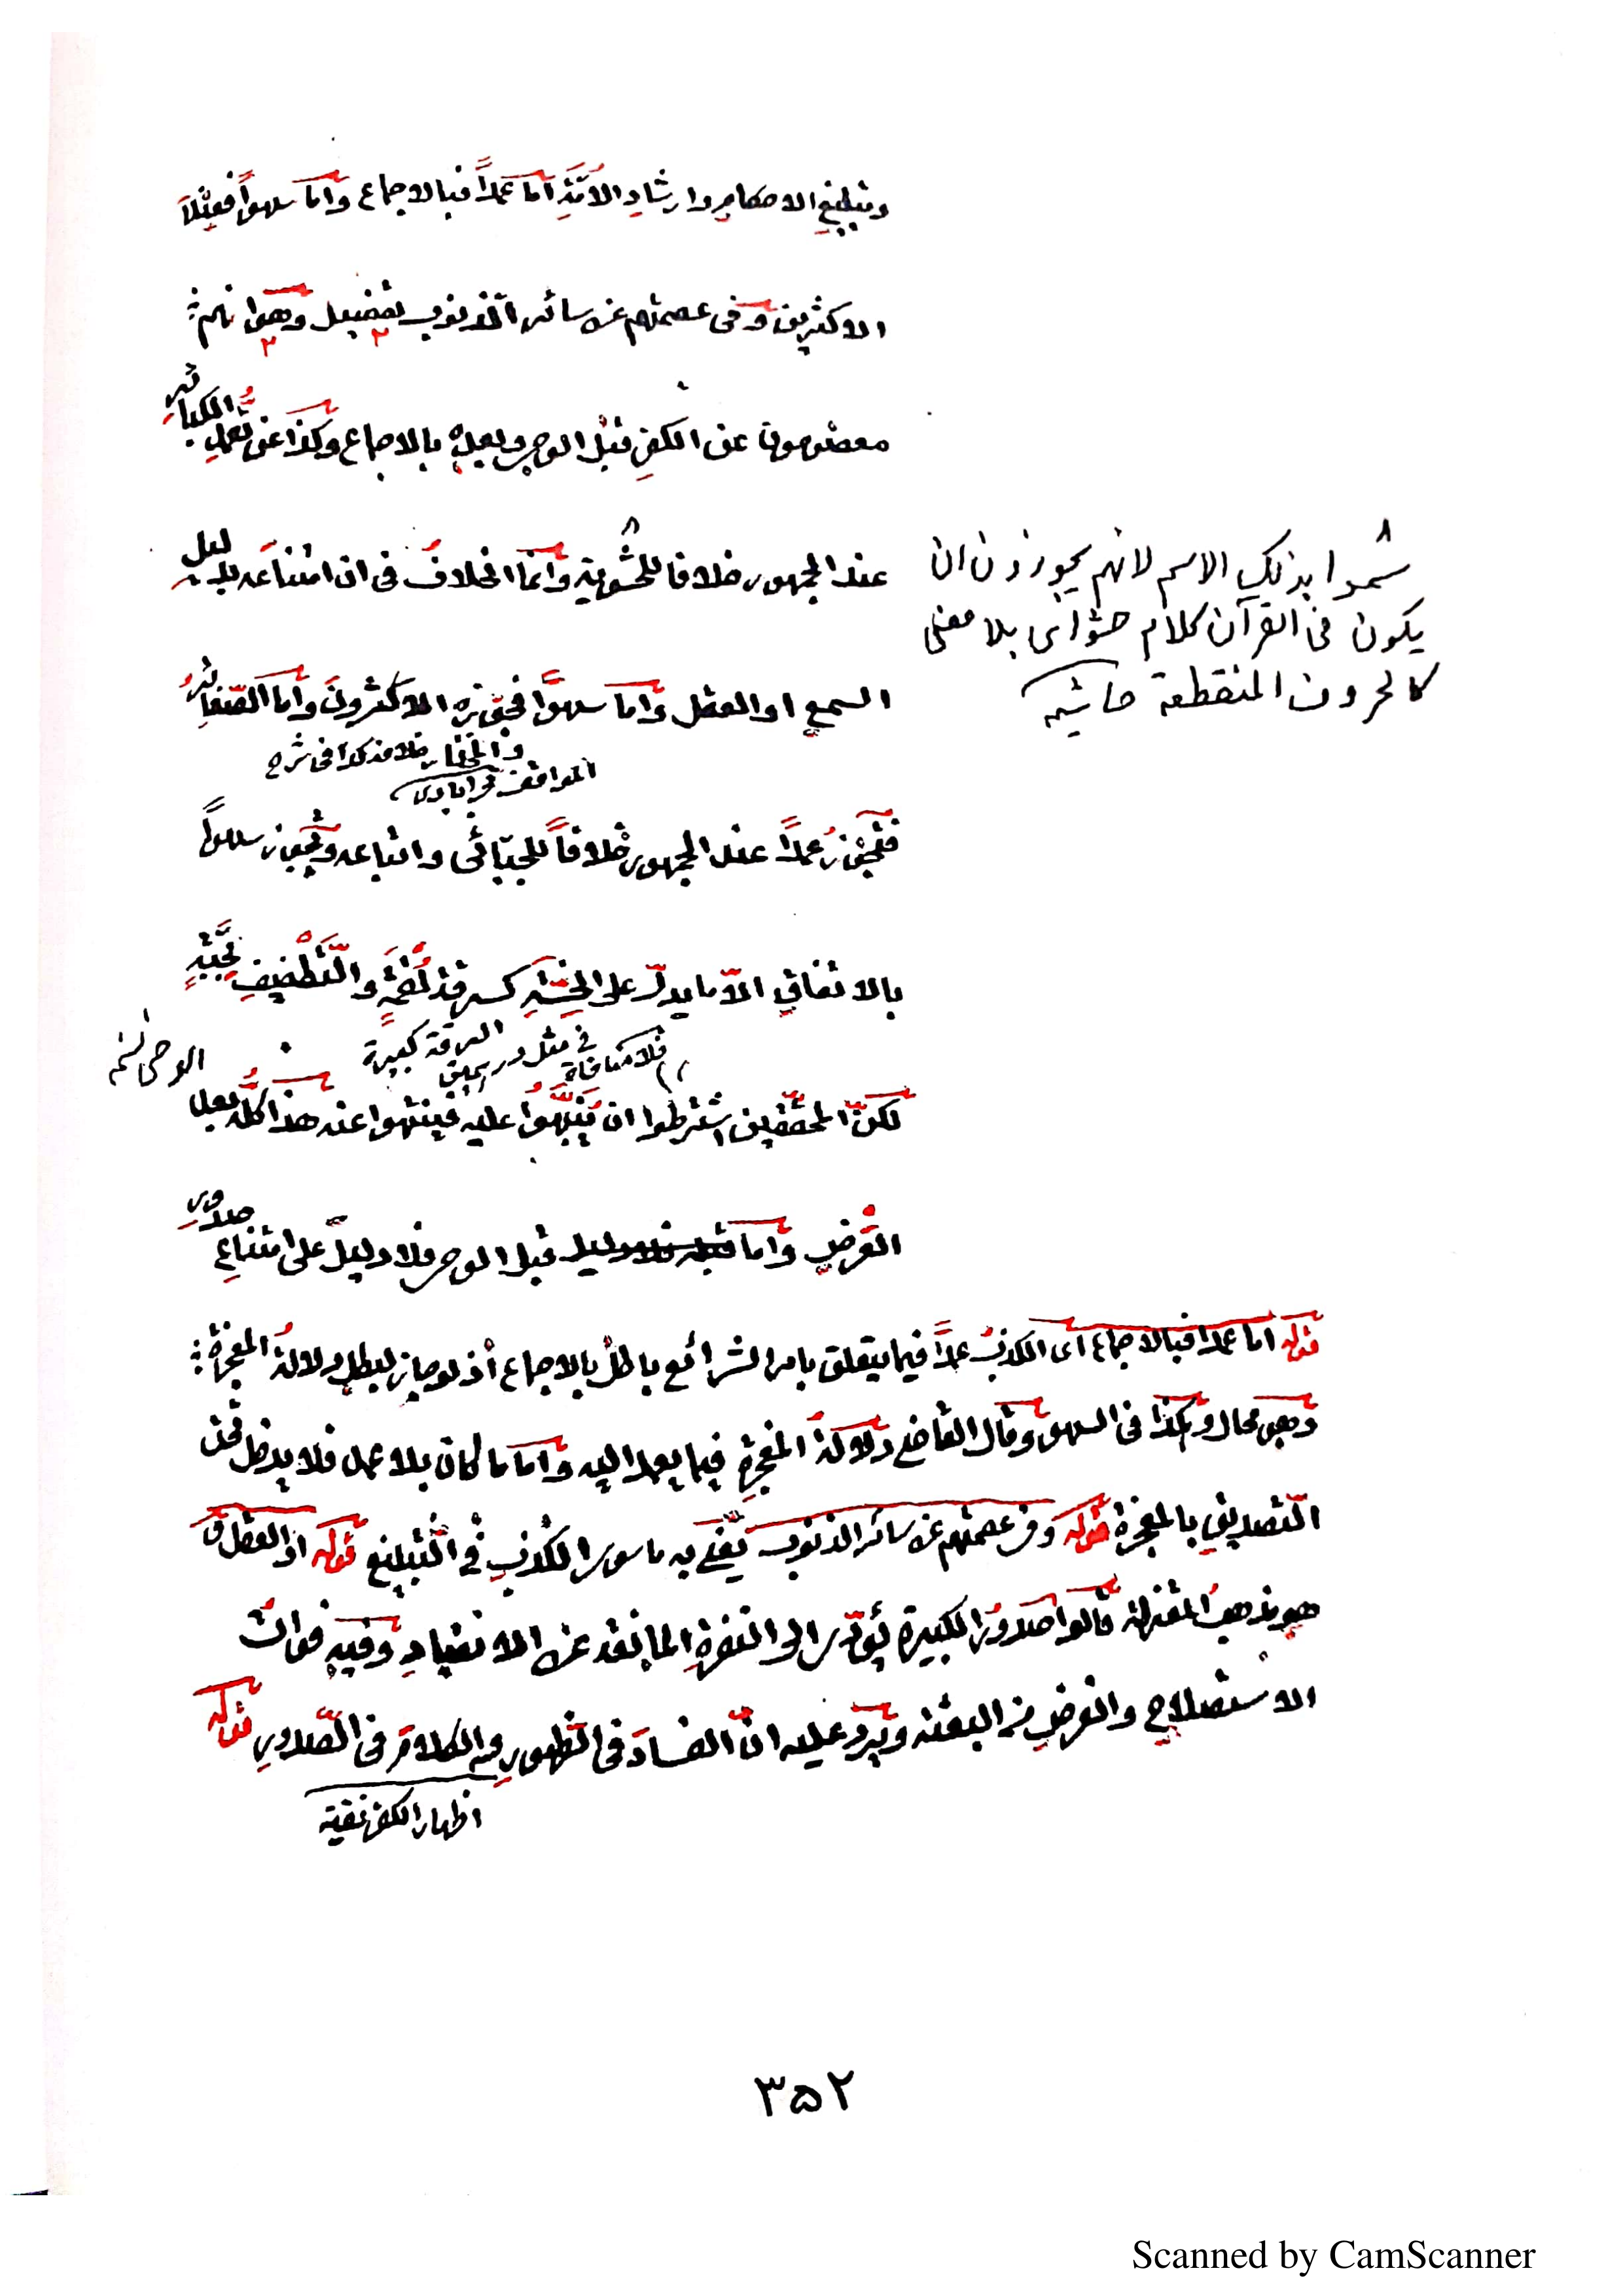 وتبليغ الاحكام وارشاد الامّة امّا عمداً فبالاجماع وامّا سهواً فعند
الاكثرين وفى عصمتهم عن سائر الذنوب تفصيل وهو انهم
معصومون عن الكفر قبل الوحى وبعده بالاجماع وكذا عن تعمد الكبائر
عند الجمهور خلافا للحشوية وانّما الخلاف فى ان امتناعه بدليل
السمع او العقل وامّا سهوًا فجوّزه الاكثرون وامّا الصّغائر
والمختار خلافه كذا فى شرح
المواقف
فتجوز عمداً عند الجمهور خلافاً للجبّائى واتباعه وتجوز سهواً
بالاتفاق الّا ما يدلّ على الخسّة كسرقة لقمة والتّطفيف بحبّة
السرقة كبيرة
فلا منافاة
فى مثل
لكنّ المحقّقين اشترطوا ان يُنَبَّهُوا عليه فينتهوا عنه هذا كلّه بعد
الوحى
الغرض وامّا قبل الوحى فلا دليل على امتناع صدور
٨
سُمّوا بذلك الاسم لانهم يجوزون ان
يكون فى القرآن كلام حشو اى بلا معنى
كالحروف المنقطعة حاشيه
قوله امّا عمدا فبالاجماع اى الكذب عمداً فيما يتعلق بامر الشرائع باطل بالاجماع اذ لو جاز لبطل دلالة المعجزة
وهو محال وهكذا فى السهو وقال القاضى دلالة المعجزة فيما يعمد اليه وامّا ما كان بلا عمد فلا يدخل تحت
التّصديق بالمعجزة قوله وفى عصمتهم عن سائر الذنوب يعنى به ما سوى الكذب فى التّبليغ قوله او العقل
هو مذهب المعتزلة قالوا صدور الكبيرة يؤدّى الى النفرة المانعة عن الانقياد وفيه فوات
الاستصلاح والغرض من البعثة ويرد عليه انّ الفساد فى الظهور والكلام فى الصّدور قوله
اظهار الكفر تقية
٣٥٢
Scanned by CamScanner